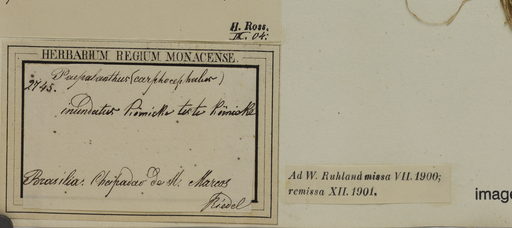 H. Ross.
IX. 04.
HERBARIUM REGIUM MONACENSE.
Paepalanthus (carphocephalus)
2745.
inundatus Körnicke teste Körnicke
Brasilia: Chapadao de St. Marcos
Riedel
Ad W. Ruhland missa VII. 1900;
remissa XII. 1901.
image